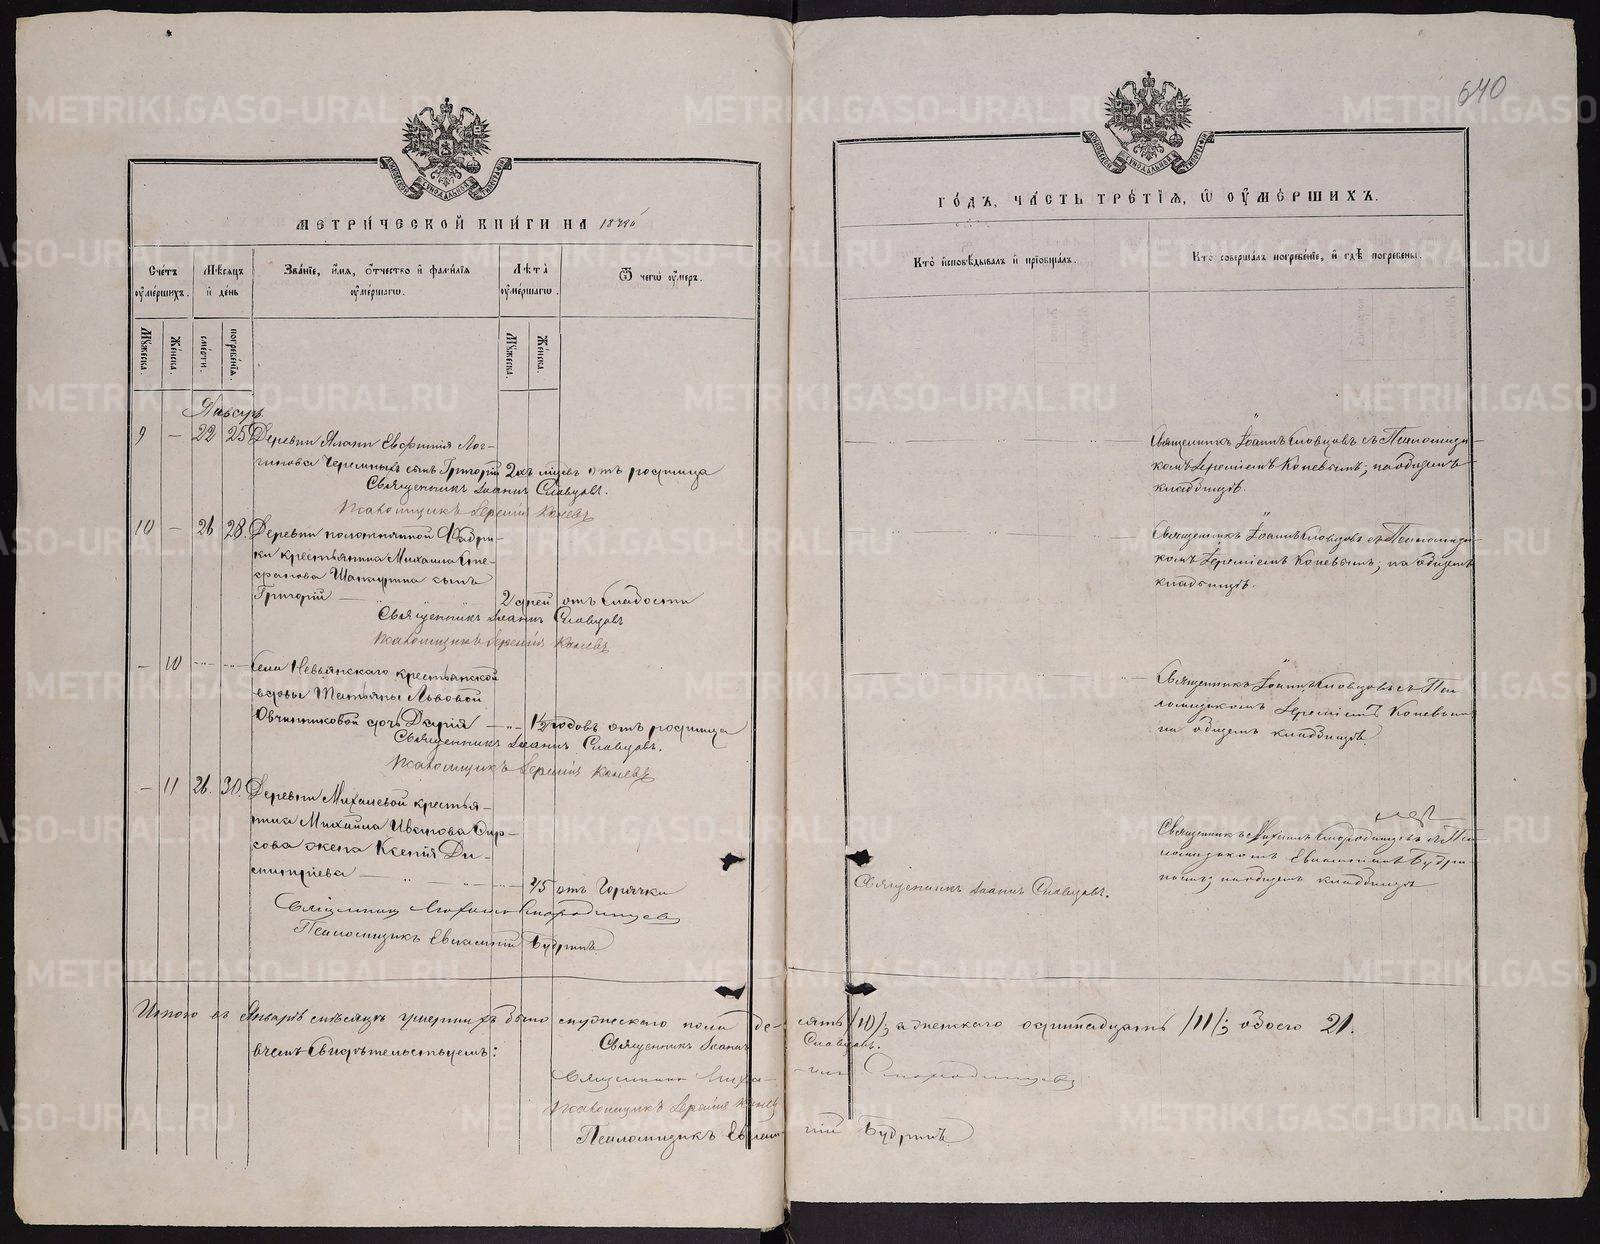 640
МЕТРИ́ЧЕСКОЙ КНИ́ГИ НА
ГО́ДЪ, ЧА́СТЬ ТРЕ́ТІЯ, Ѡ ОУМЕ́РШИХЪ.
Счётъ оумершихъ.
Мѣсяцъ и день
Званіе, имя, отчество и фамилія оумершагѡ.
Лѣта оумершагѡ.
Ѿ чегѡ оумеръ.
Кто исповѣдывалъ и пріобщалъ.
Кто совершалъ погребеніе, и гдѣ погребены.
Мужеска.
Женска.
смерти.
погребенія.
Мужеска.
Женска.
Январь
9 — 22 25 Деревни Ялани Евфимія Лог-
гинова Черемныхъ сынъ Григорій 2хъ мѣсяц отъ родимца
Священникъ Іоаннъ Словцовъ.
Псаломщикъ Іеремія Коневъ
Священникъ Іоаннъ Словцовъ съ Псаломщи-
комъ Іереміемъ Коневымъ; на общемъ
кладбищѣ.
10 — 26 28 Деревни полотняной Фабри-
ки крестьянина Михаила Сте-
фанова сынъ
Григорій — 2 дней отъ слабости
Священникъ Іоаннъ Словцовъ
Псаломщикъ Іеремія Коневъ
Священникъ Іоаннъ Словцовъ съ Псаломщи-
комъ Іереміемъ Коневымъ; на общемъ
кладбищѣ.
— 10 Села Невьянскаго крестьянской
вдовы Татьяны Львовой
Овчинниковой дочь Дарія — 1½ годовъ отъ родимца
Священникъ Іоаннъ Словцовъ.
Псаломщикъ Іеремія Коневъ
Священникъ Іоаннъ Словцовъ съ Пса-
ломщикомъ Іереміемъ Коневымъ
на общемъ кладбищѣ.
— 11 26. 30. Деревни Михалевой крестья-
нина Михаила Иванова
жена Ксенія Ди-
митріева — 25 отъ Горячки
Священникъ Михаилъ Смородинцевъ
Псаломщикъ Евгеній Будринъ
Священникъ Іоаннъ Словцовъ.
Священникъ Михаилъ Смородинцевъ съ Пса-
ломщикомъ Евгеніемъ Будри-
нымъ; на общемъ кладбищѣ
Итого въ Январѣ мѣсяцѣ умершихъ было мужескаго пола де-
сять /10/; а женскаго одиннадцать /11/; обоего 21.
въ чемъ свидѣтельствуемъ:
Священникъ Іоаннъ Словцовъ.
Священникъ Миха-илъ Смородинцевъ
Псаломщикъ Іеремія Коневъ
Псаломщикъ Евгеній Будринъ
METRIKI.GASO-URAL.RU